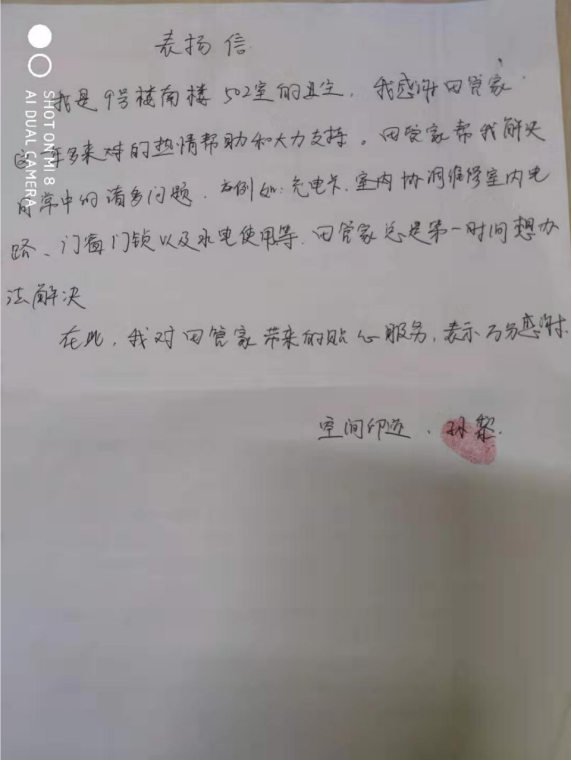 表扬信
我是9号楼南楼502室的业主，我感谢田管家
这年多来对的热情帮助和大力支持。田管家帮我解决
日常中的诸多问题．例如：充电卡、室内协调维修室内电
路、门窗门锁以及水电使用等．田管家总是第一时间想办
法解决
在此，我对田管家带来的贴心服务，表示万分感谢.
空间印迹．孙黎.
SHOT ON MI 8
AI DUAL CAMERA